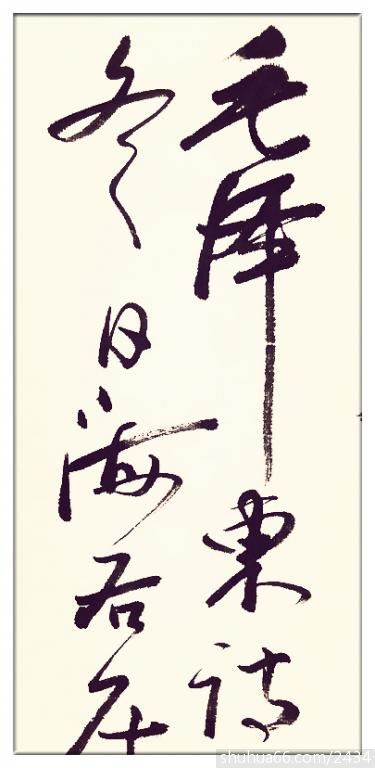 毛泽東诗
冬日海右
shuhua66.com/2434